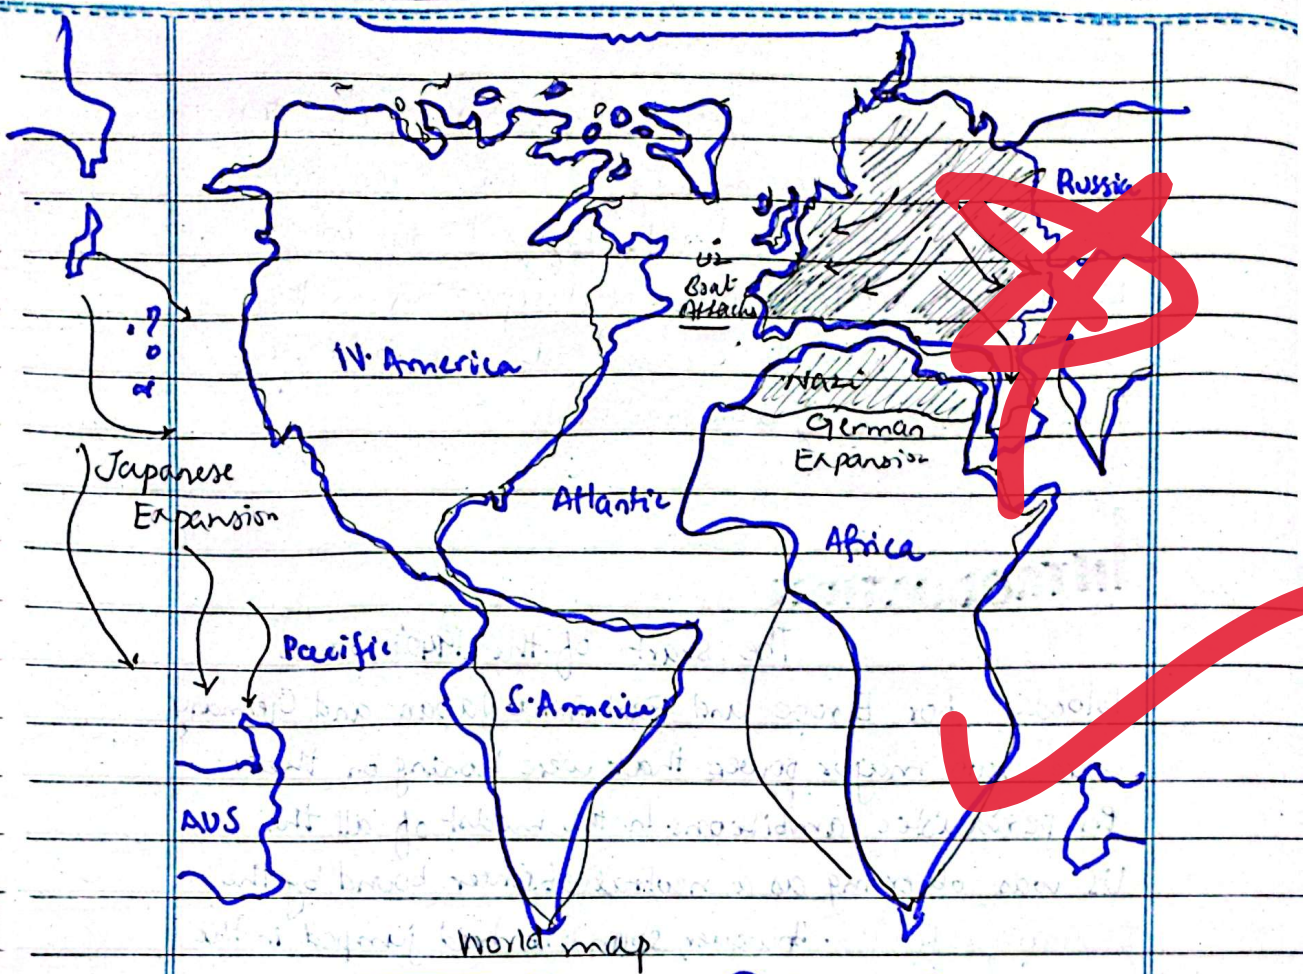 Russia
Boat
Attacks
N. America
Nazi
German
Expansion
Japanese
Expansion
Atlantic
Africa
Pacific
S. America
AUS
World map